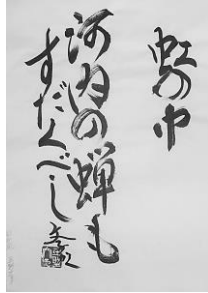 虹の中
河内の蝉も
すだくべし